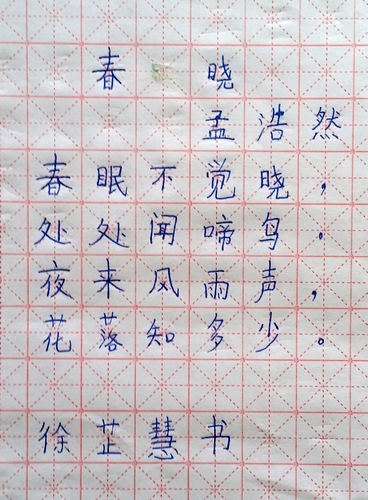 春 晓
孟浩然
春眠不觉晓，
处处闻啼鸟。
夜来风雨声，
花落知多少。
徐芷慧书